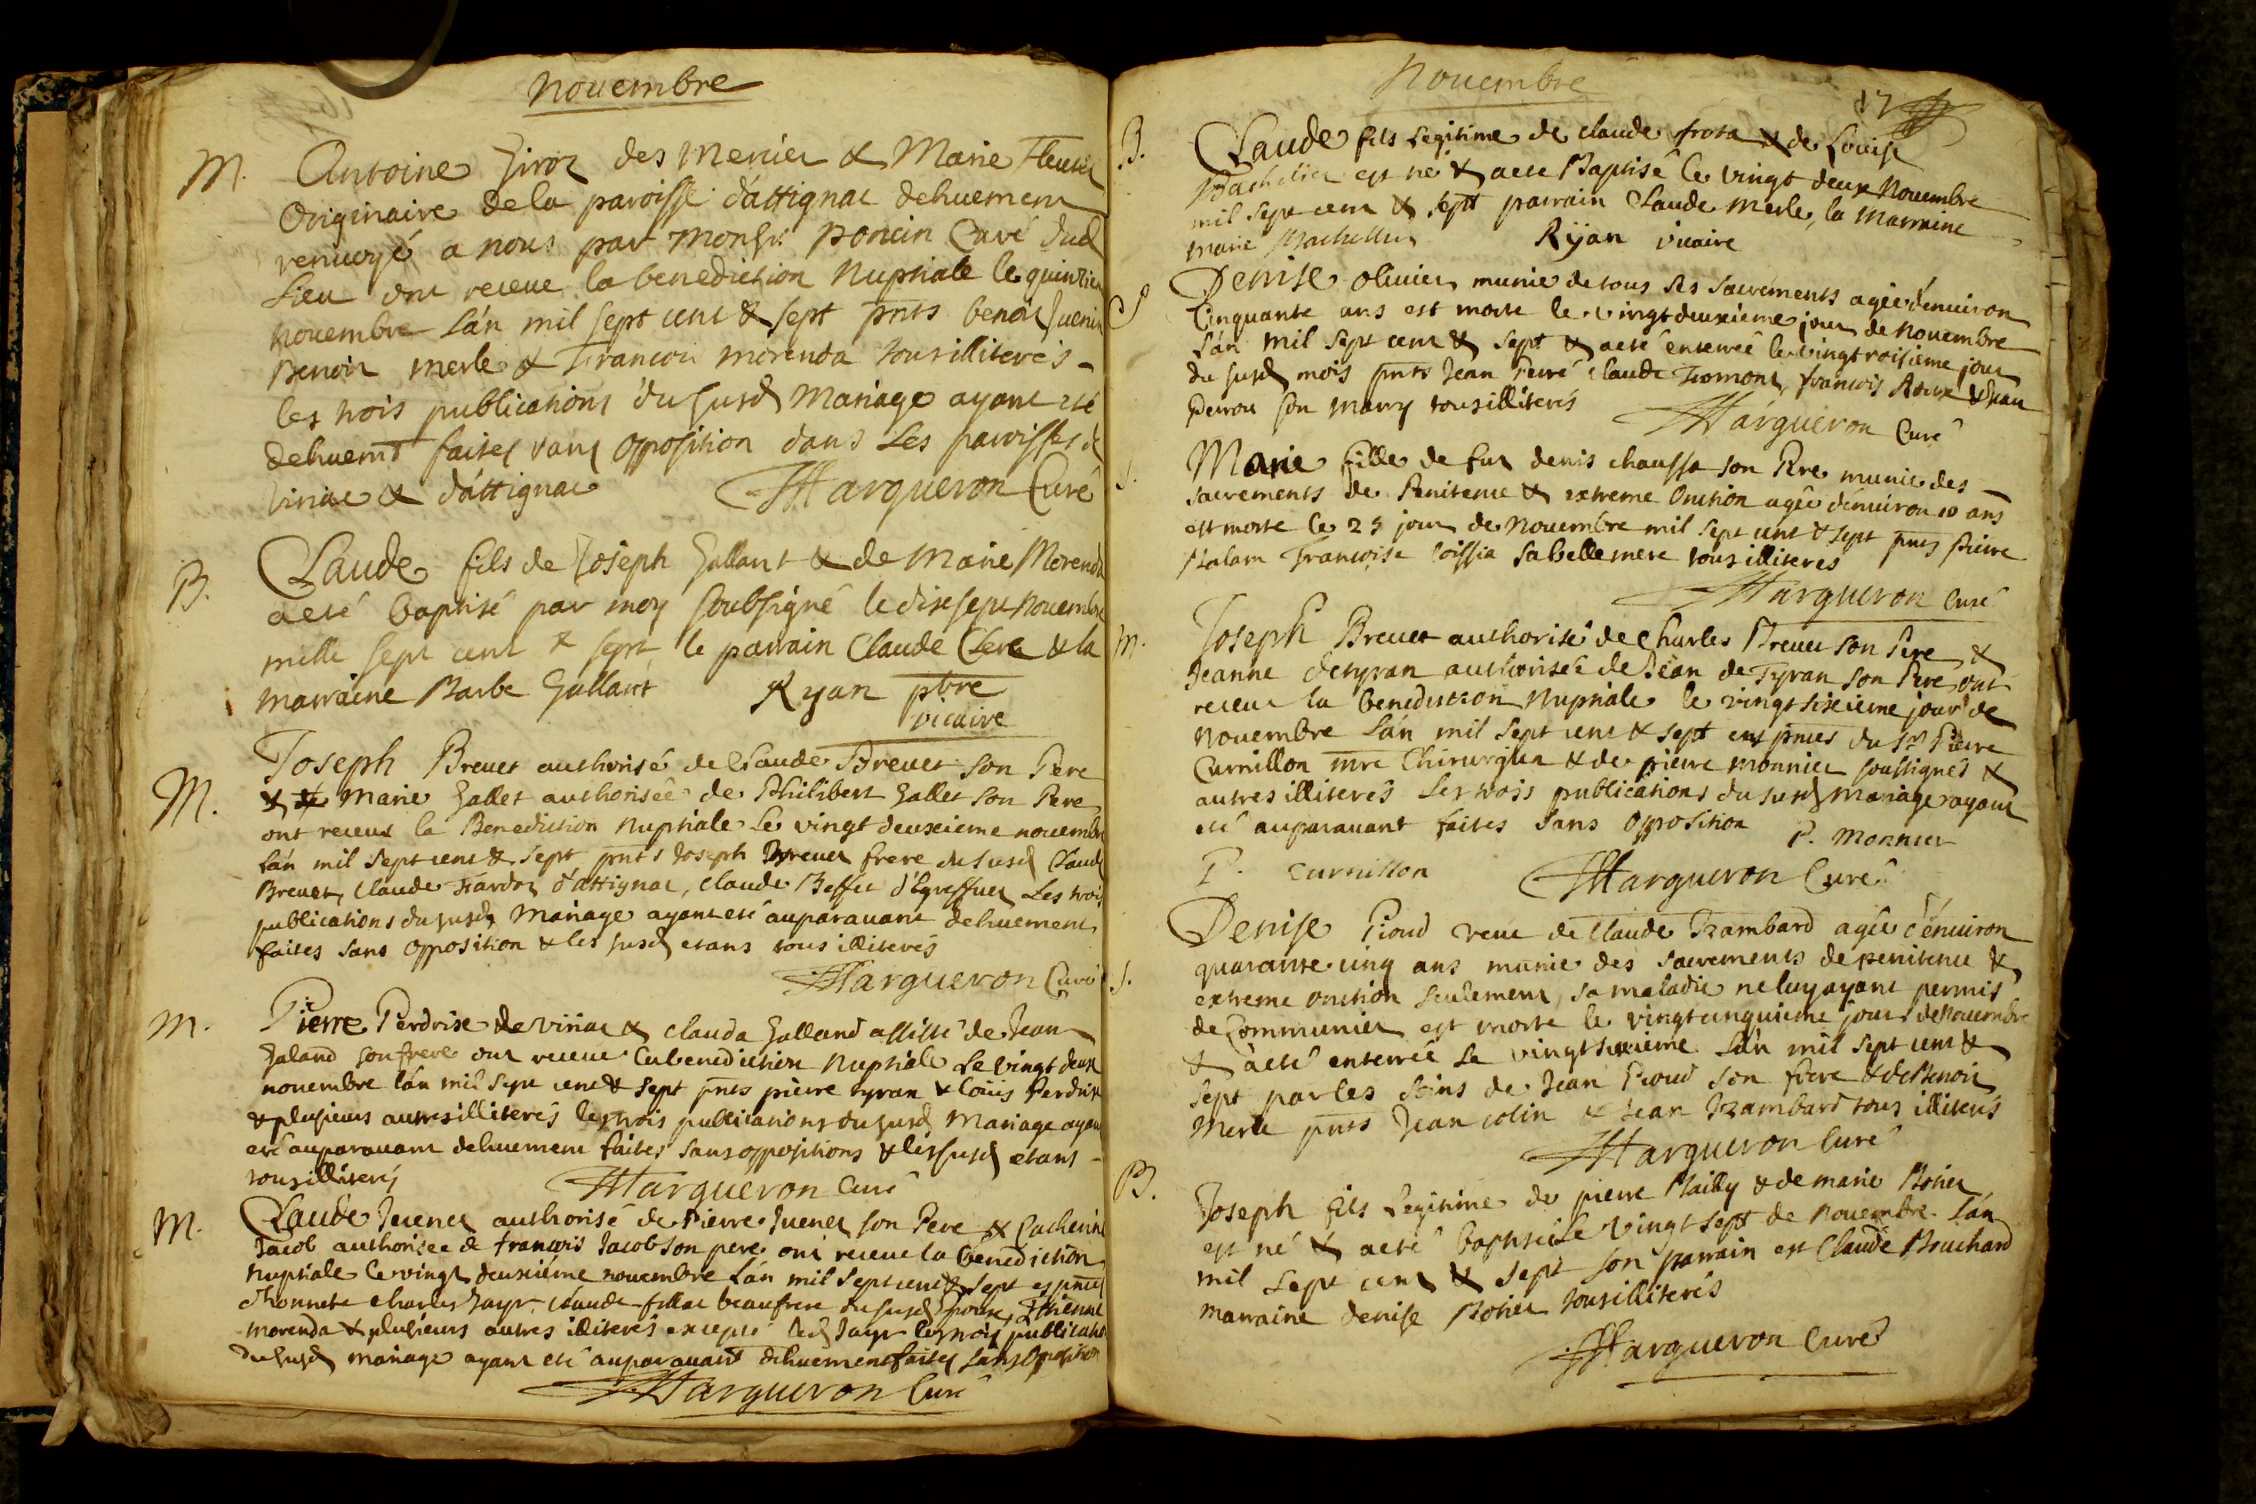 Nouembre
M. Antoine Giroz des Mercier & Marie
Originaire de la paroisse d'attignac dehuement
renuoyé a nous par Monsr. poncin Curé dud
Lieu ont receue la benediction Nuptiale le quinzie
nouembre L'án mil sept cent & sept pnts benoit Juenin
Benoit merle & Francois morenda tous illiteres -
les trois publications du susd Mariage ayant eté
dehuemt faites sans opposition dans Les paroisses de
viriac & d'attignac Margueron Curé
B. Claude fils de Joseph Gallant & de Marie Morenda
a eté baptisé par moy soubsigné le dixsept nouembre
mille sept cent & sept le parrain Claude Clerc & la
marraine Barbe Gallant Ryan pbre
vicaire
M. Joseph Breuet authorisé de Claude Breuet son Pere
& Marie Gallet authorisée de Philibert Gallet son Pere
ont receue la Benediction Nuptiale Le vingt deuxieme nouembre
L'án mil sept cent & sept pnts Joseph Breuet frere du susd Claude
Breuet, Claude Fardoz d'attignac, Claude Beffet Les trois
publications du susd Mariage ayant eté auparauant dehuement
faites sans opposition & les susd etans tous illiterés
Margueron Curé
M. Pierre Perdrise de viriac & Clauda Galland assisté de Jean
Galand son frere ont receue la benediction Nuptiale Le vingt deux
nouembre l'án mil sept cent & sept pnts pierre tyran & Loüis Perdrise
& plusieurs autres illiterés les trois publications du susd Mariage ayant
eté auparauant dehuement faites sans oppositions & les susd etans -
tous illiterés Margueron Curé
M. Claude Juenet authorisé de Pierre Juenet son Pere & Catherine
Jacob authorisee de françois Jacob son pere ont receue la benediction
Nuptiale Le vingt deuxiéme nouembre L'án mil sept cent & sept es pnces
d'honnete Charles Jayr, Claude fillac beaufrere du susd Epoux, Ethienne
morenda & plusieurs autres illiterés excepté led Jayr les trois publicatns
du susd mariage ayant eté auparauant dehuement faites sans opposition
Margueron Curé
Nouembre
17
B. Claude fils Legitime de Claude frota & de Loüise
Bachelier est né & a eté Baptisé le vingt deux Nouembre
mil sept cent & sept parrain Claude Merle, la Marraine
Marie Bachellier Rÿan vicaire
S Denise Oliuier munie de tous ses sacrements agée d'enuiron
Cinquante ans est morte le vingt deuxieme jour de Nouembre
L'án mil sept cent & sept & a eté enterreé le vingt troisieme jour
du susd mois pnts Jean Claude françois Roux & Jean
son marry tous illiterés Margueron Curé
S. Marie fille de fut denis chaussa son Pere munie des
sacrements de Penitence & extreme Onction agée d'enuiron 10 ans
est morte le 23 jour de Nouembre mil sept cent & sept pnts pierre
Françoise Loissia sa bellemere tous illiteres
Margueron Curé
M. Joseph Breuet authorisé de Charles Breuet son Pere &
Jeanne detyran authorisée de Jean de Tyran son Pere ont
receue la benediction Nuptiale le vingt sixieme jour de
Nouembre L'án mil sept cent & sept es pnces du Sr Pierre
Curnillon mre Chirurgien & de pierre monnier soussignés &
autres illiterés Les trois publications du susd mariage ayant
eté auparauant faites sans opposition P. Monnier
P. Curnillon Margueron Curé
S. Denise Pioud veue de Claude Rambard agée d'enuiron
quarante cinq ans munie des sacrements de penitence &
extreme onction seulement, sa maladie ne luy ayant permis
de Communier est morte le vingtcinquieme jour de Nouembre
& a eté enterreé Le vingt sixieme L'án mil sept cent &
sept par les soins de Jean Pioud son frere & de Benoit
Merle pnts Jean colin & Jean Rambard tous illiterés
Margueron Curé
B. Joseph fils Legitime de pierre Bailly & de marie Botier
est né & a eté baptisé Le vingt sept de Nouembre L'án
mil sept cent & sept son parrain est Claude Bouchard
marraine denise Botier tous illiterés
Margueron Curé